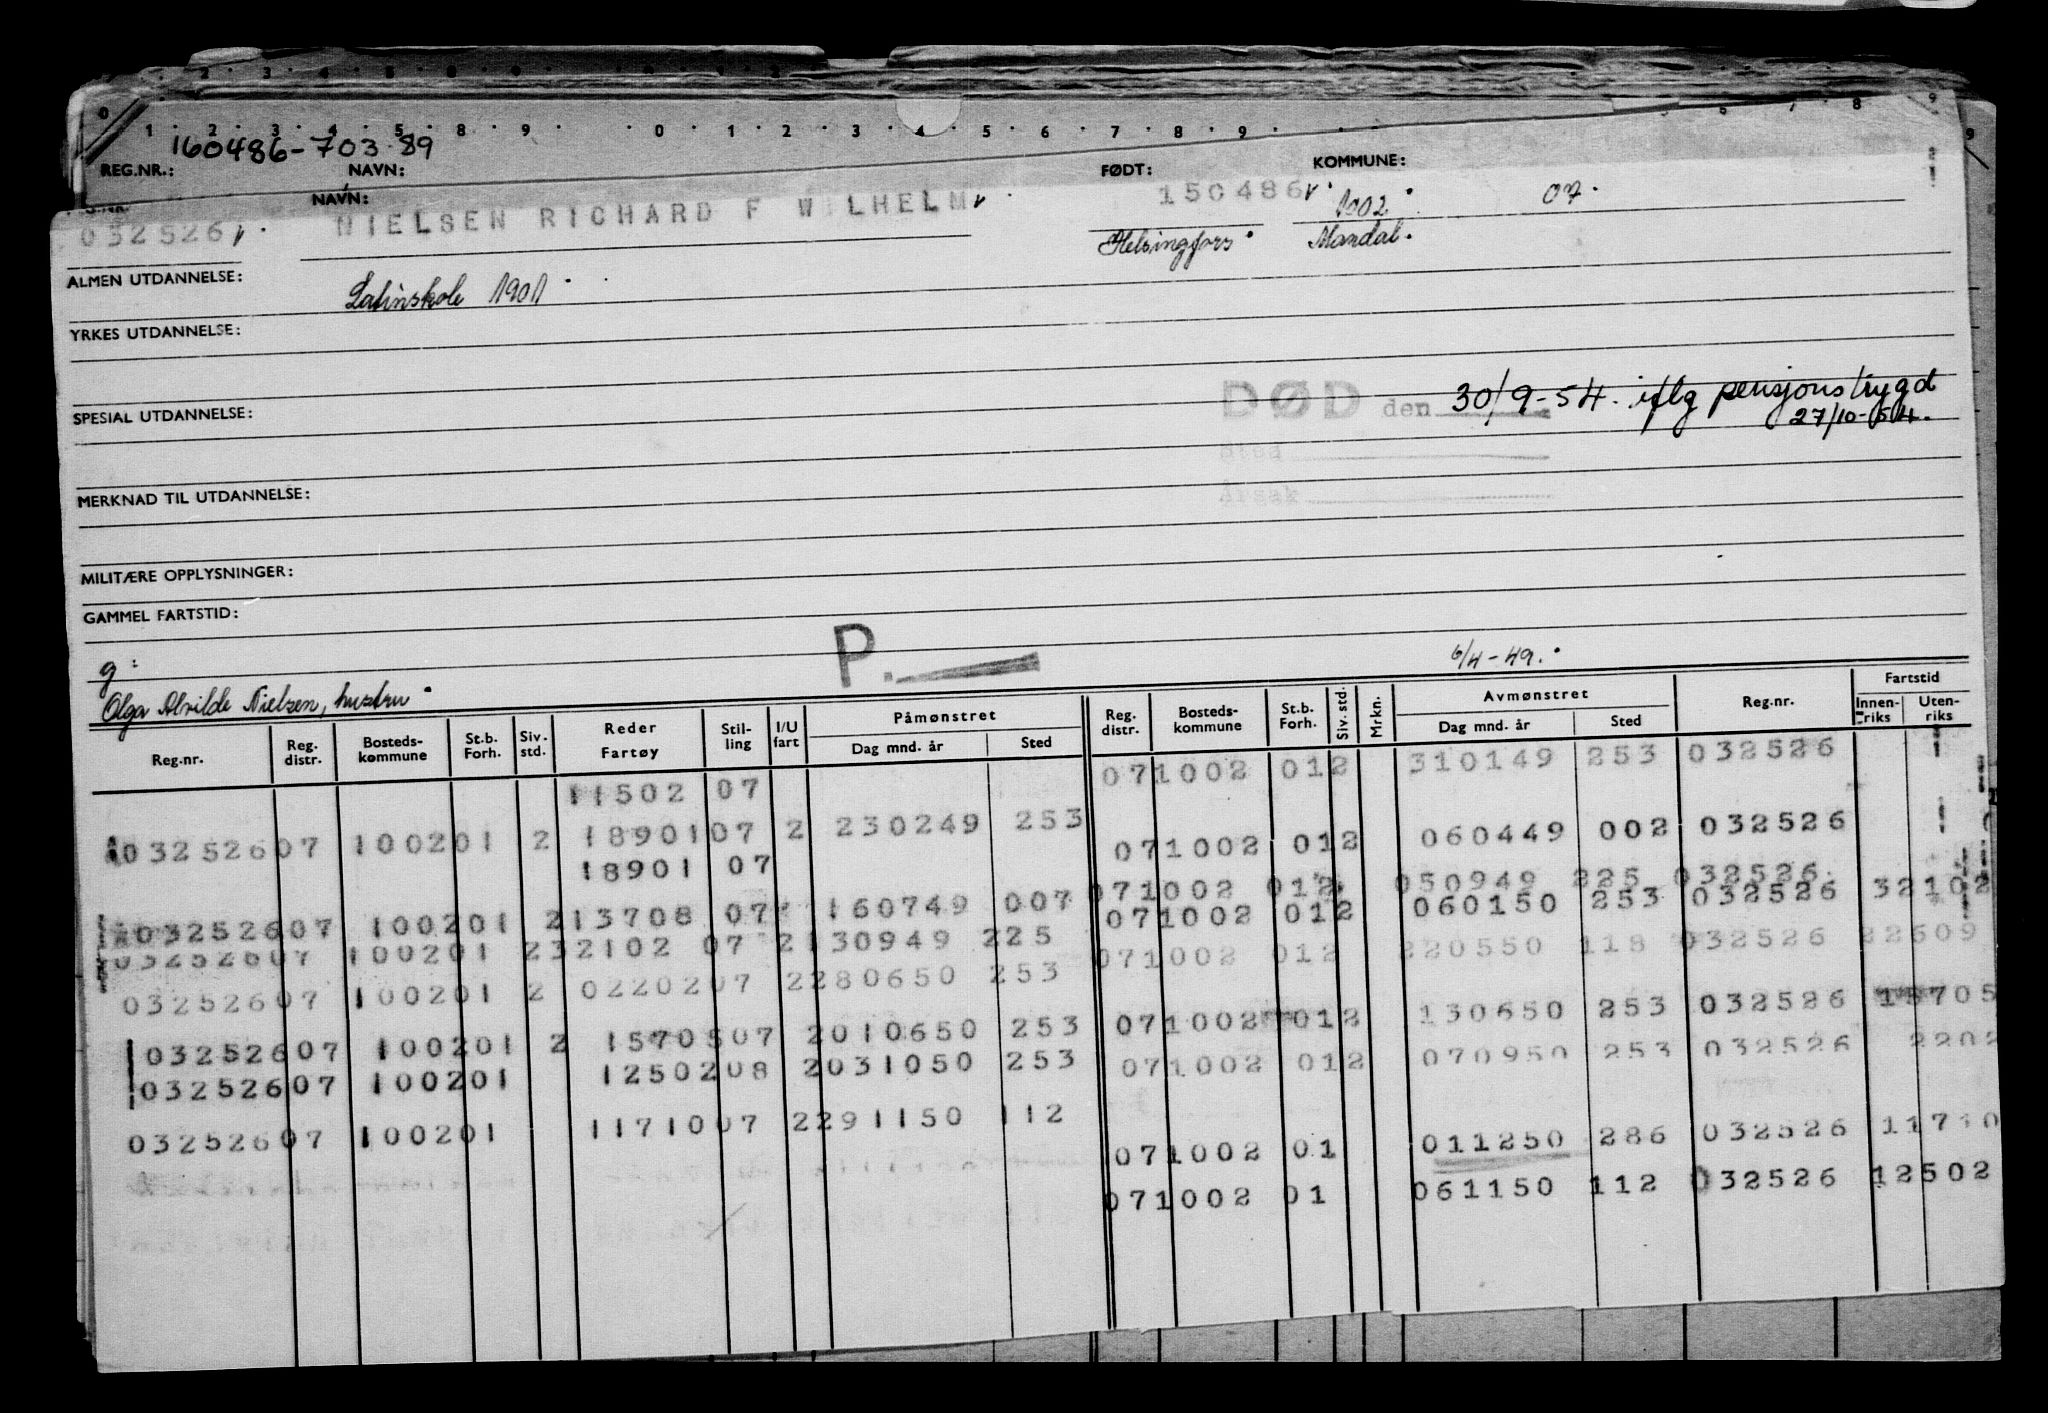 160486-703 89
REG.NR.: NAVN: FØDT: KOMMUNE:
NAVN:
032526 NIELSEN RICHARD F WILHELM 150486 1002 07
Helsingfors Mandal.
ALMEN UTDANNELSE: Latinskole 1901
YRKES UTDANNELSE:
DØD den 30/9-54. iflg pensjonstrygd
27/10-54.
SPESIAL UTDANNELSE:
Sted
Årsak
MERKNAD TIL UTDANNELSE:
MILITÆRE OPPLYSNINGER:
GAMMEL FARTSTID:
P.
g: 6/4-49.
Olga Alvilde Nielsen, hustru
Reg.nr. Reg. distr. Bosteds- kommune St.b. Forh. Siv. std. Reder Fartøy Stil- ling I/U fart Påmønstret Dag mnd. år Sted Reg. distr. Bosteds- kommune St.b. Forh. Siv. std. Mrkn. Avmønstret Dag mnd. år Sted Reg.nr. Fartstid Innen- riks Uten- riks
11502 07 071002 012 310149 253 032526
03252607 100201 2 1890107 2 230249 253 071002 012 060449 002 032526
18901 07 071002 012 050949 225 032526
03252607 100201 213708 07 160749 007 071002 012 060150 253 032526 32102
03252607 100201 232102 07 2130949 225 071002 012 220550 118 032526 22609
03252607 100201 2 0220207 2280650 253 071002 012 130650 253 032526 15705
03252607 100201 2 1570507 2010650 253 071002 012 070950 253 032526 2202
03252607 100201 1250208 2031050 253
03252607 100201 1171007 2291150 112 071002 01 011250 286 032526 11710
071002 01 061150 112 032526 12502